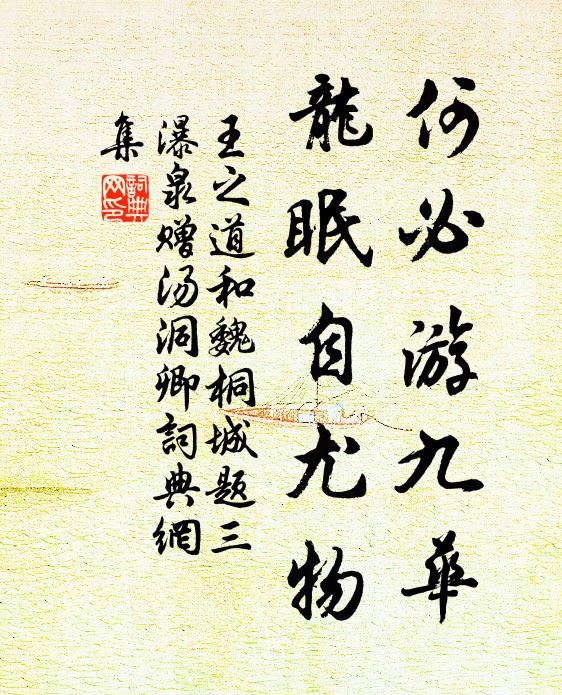 何必游九華
龍眠自尤物
王之道和魏桐城題三
瀑泉赠汤洞卿詞典網
集
詞典
网印